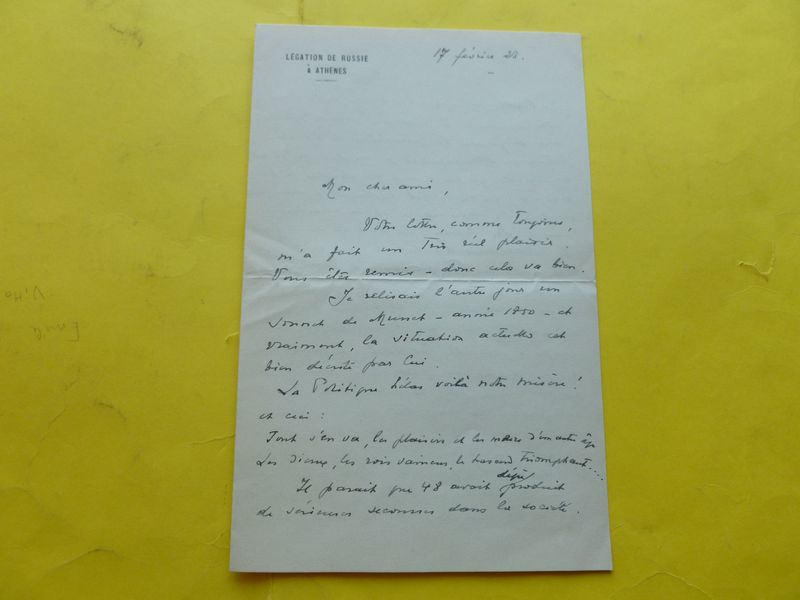 LÉGATION DE RUSSIE
à ATHÈNES
17 février 22.
Mon cher ami,
Votre lettre, comme toujours,
m'a fait un très réel plaisir.
Vous êtes remis – donc cela va bien.
Je relisais l'autre jour un
sonnet de Musset – année 1850 – et
vraiment, la situation actuelle est
bien décrite par lui.
La Politique hélas voilà notre misère!
et ceci :
Tout s'en va, les plaisirs et les mœurs d'un autre âge
Les dieux, les rois vaincus, le hasard triomphant....
Il parait que 48 avait déjà produit
de sérieuses secousses dans la société.